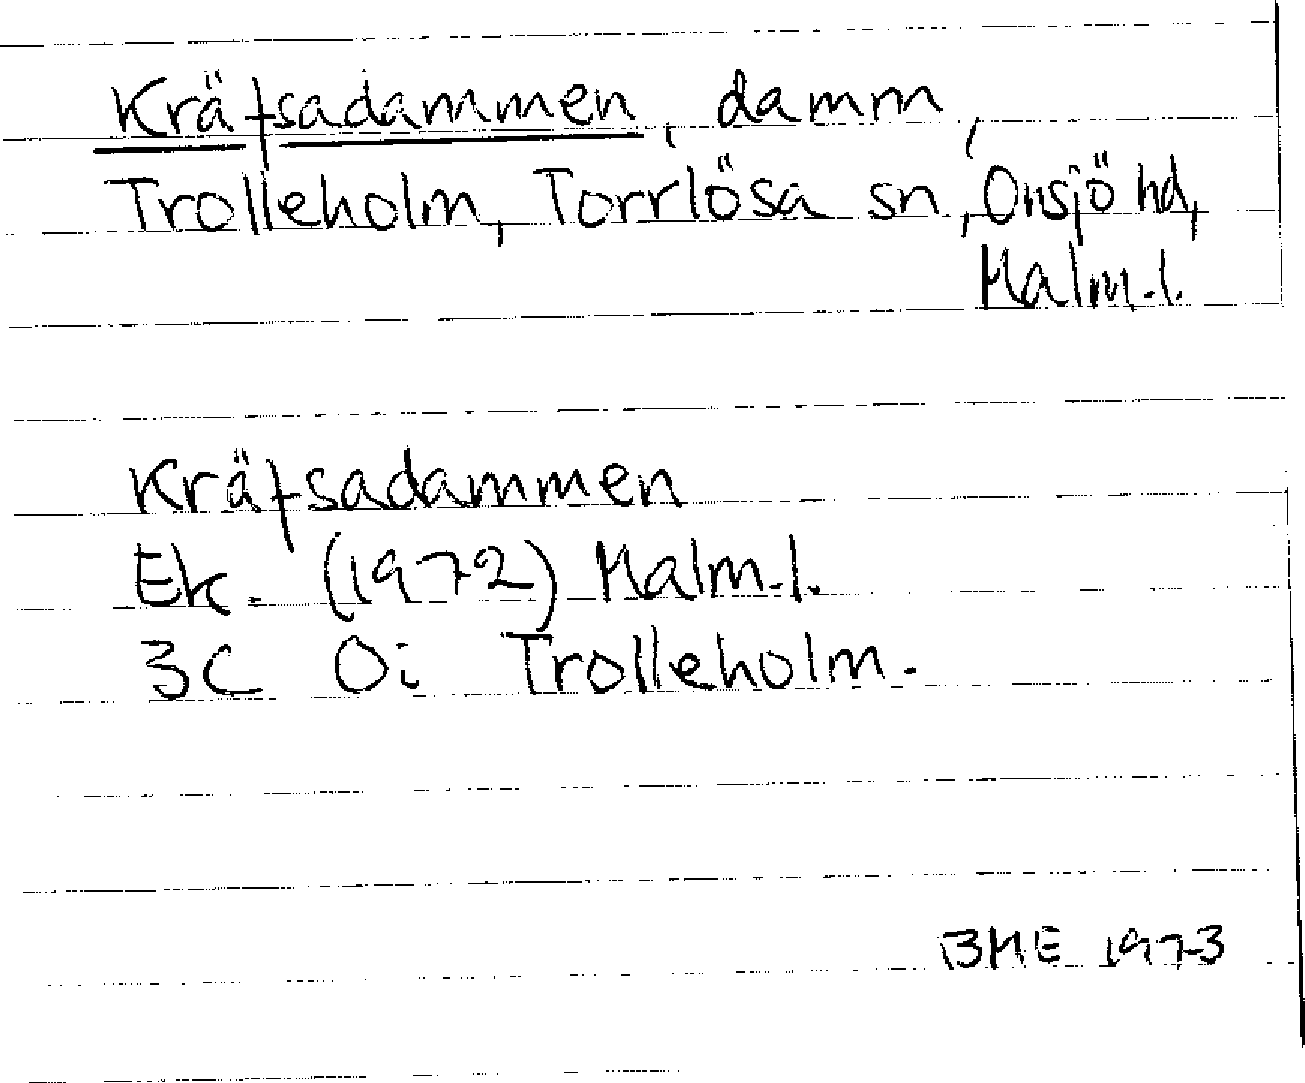 Kräfsadammen, damm,
Trolleholm, Torrlösa sn, Onsjö hd,
Malm.l.
Kräfsadammen
Ek. (1972) Malm.l.
3C Oi Trolleholm.
BME 1973